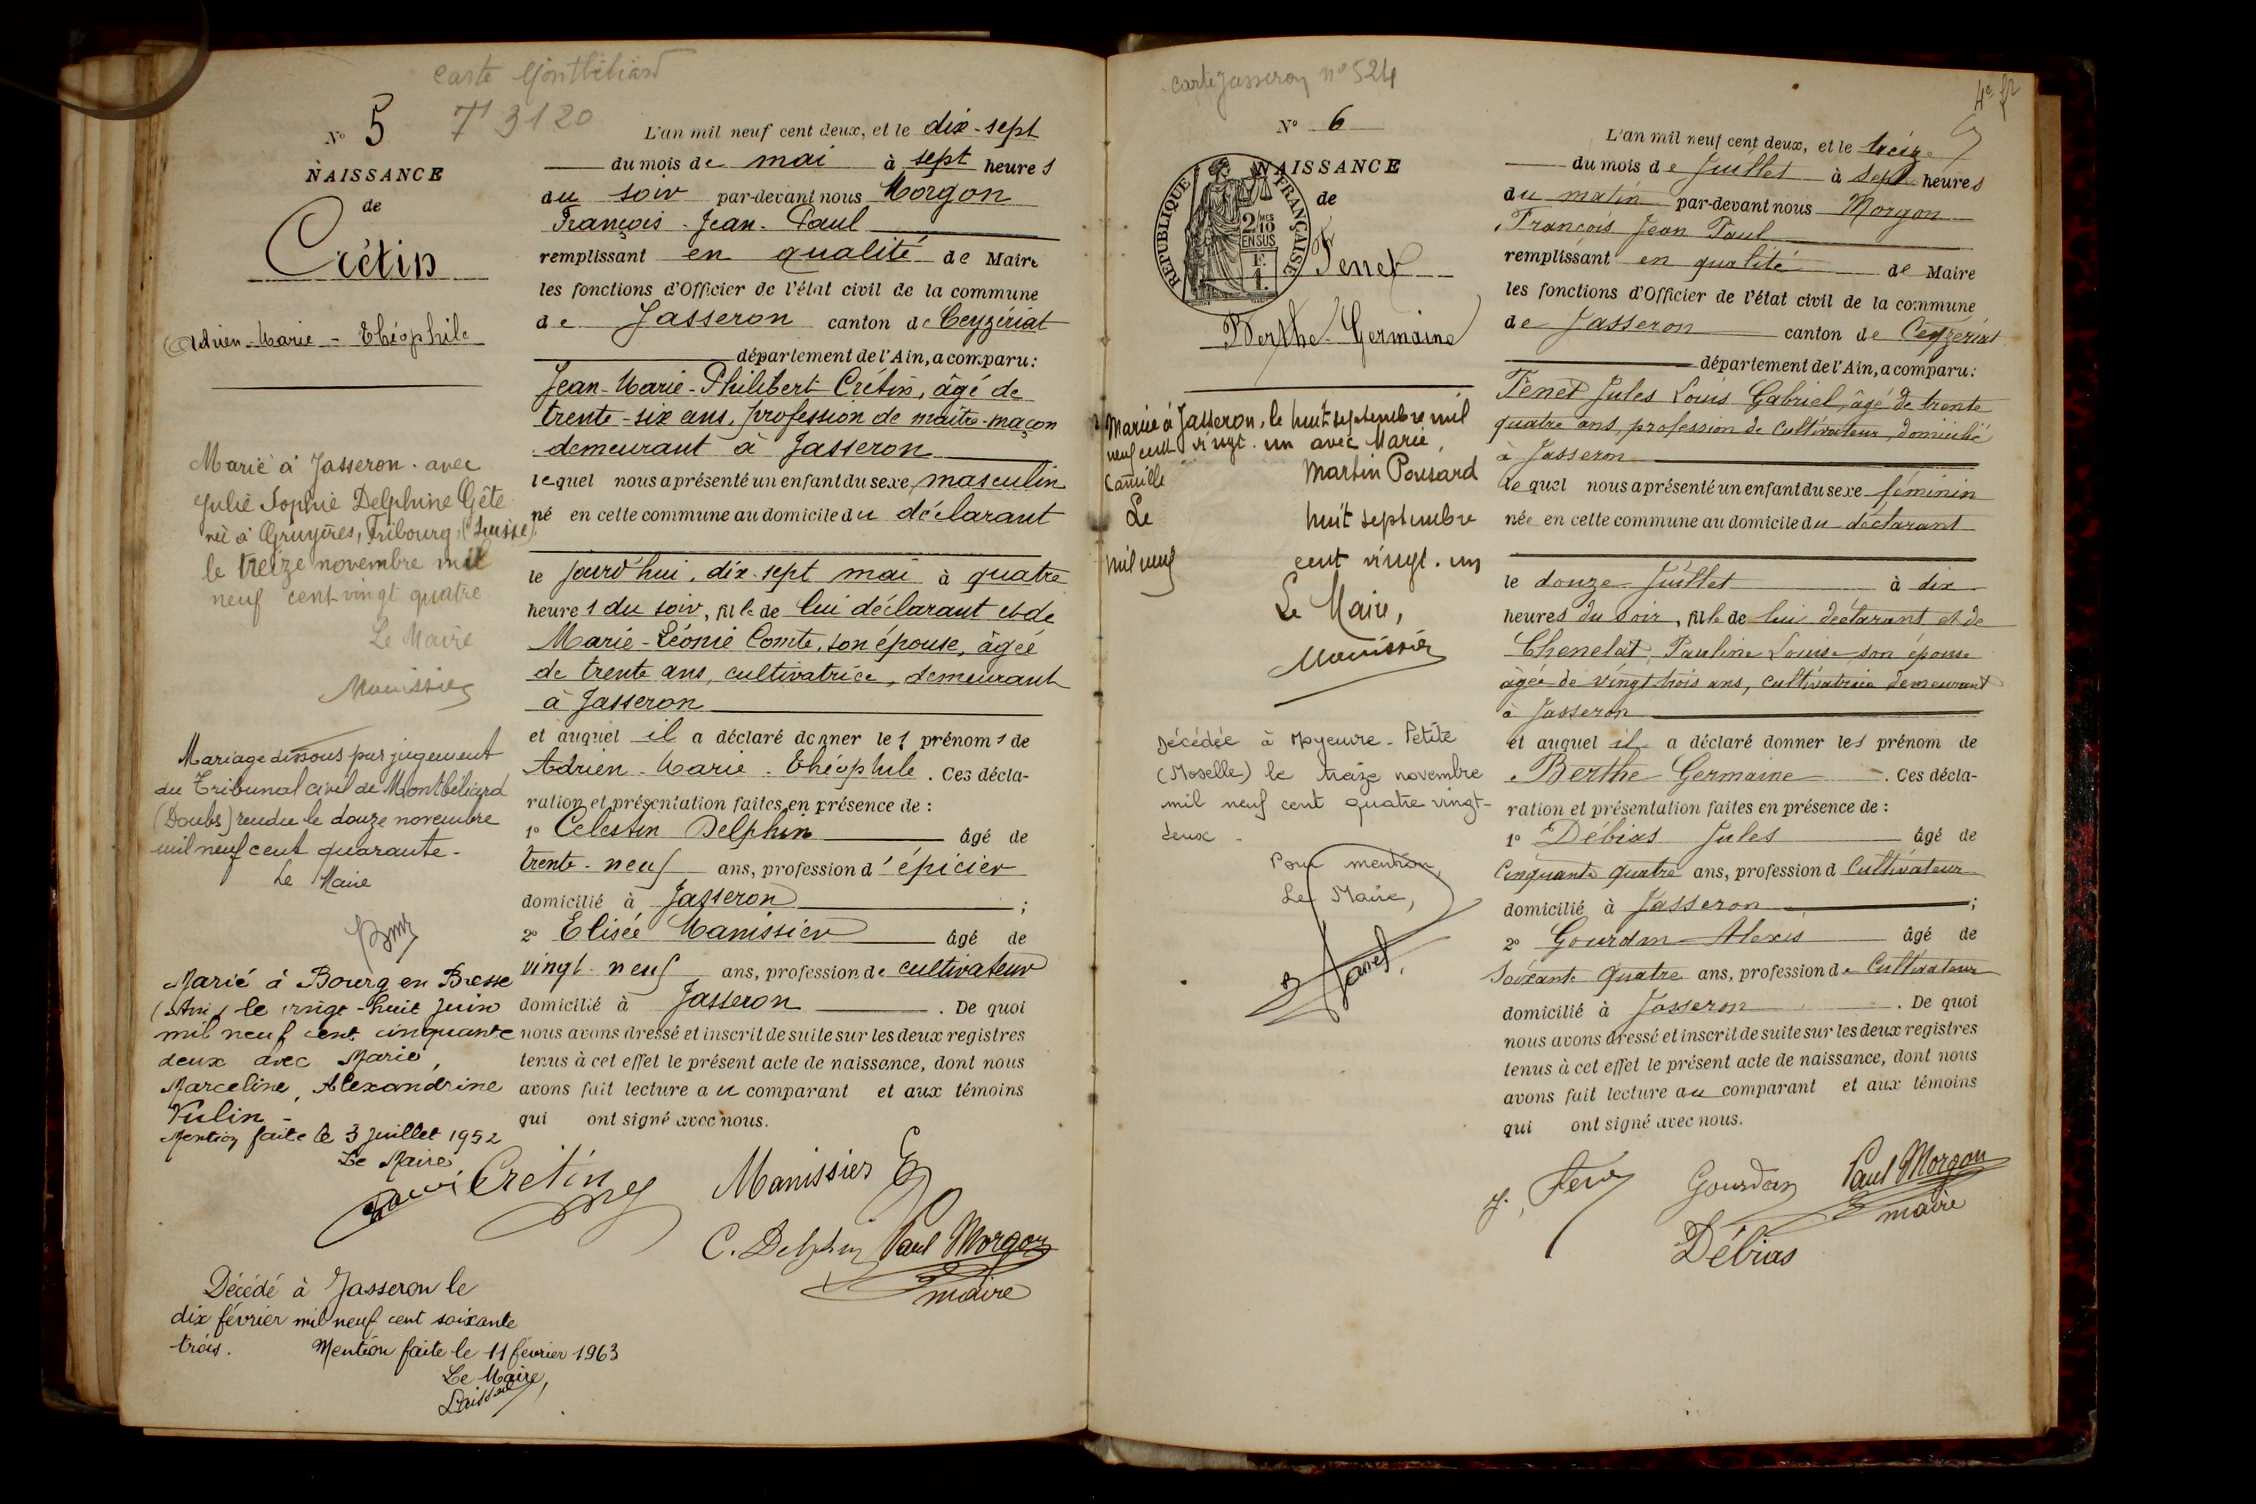 Carte Montbéliard
7' 3120
N° 5
NAISSANCE
de
Crétin
Adrien-Marie-Théophile
Marié à Jasseron avec
Julie Sophie Delphine Gête
née à Gruyères, Fribourg (Suisse)
le treize novembre mil
neuf cent vingt quatre
Le Maire
Manissier
Mariage dissous par jugement
du Tribunal civil de Montbéliard
(Doubs) rendu le douze novembre
mil neuf cent quarante.
Le Maire
Marié à Bourg en Bresse
(Ain) le vingt-huit Juin
mil neuf cent cinquante
deux avec Marie,
Marceline, Alexandrine
Vulin -
Mention faite le 3 Juillet 1952
Le Maire
L'an mil neuf cent deux, et le dix-sept
du mois de mai à sept heures
du soir par-devant nous Morgon
François-Jean-Paul
remplissant en qualité de Maire
les fonctions d'Officier de l'état civil de la commune
de Jasseron canton de Ceyzériat
département de l'Ain, a comparu:
Jean-Marie-Philibert Crétin, âgé de
trente-six ans, profession de maître-maçon
demeurant à Jasseron
lequel nous a présenté un enfant du sexe masculin
né en cette commune au domicile du déclarant
le jourd'hui, dix-sept mai à quatre
heures du soir, fils de lui déclarant et de
Marie-Léonie Comte, son épouse, âgée
de trente ans, cultivatrice, demeurant
à Jasseron
et auquel il a déclaré donner les prénoms de
Adrien-Marie-Théophile. Ces décla-
ration et présentation faites en présence de :
1° Celestin Delphin âgé de
trente-neuf ans, profession d'épicier
domicilié à Jasseron ;
2° Elisée Manissier âgé de
vingt-neuf ans, profession de cultivateur
domicilié à Jasseron. De quoi
nous avons dressé et inscrit de suite sur les deux registres
tenus à cet effet le présent acte de naissance, dont nous
avons fait lecture au comparant et aux témoins
qui ont signé avec nous.
Cretin Manissier E
C. Delphin Paul Morgon
maire
Décédé à Jasseron le
dix février mil neuf cent soixante
trois. Mention faite le 11 février 1963
Le Maire,
Carte Jasseron n° 524
4e
N° 6
NAISSANCE
de
RÉPUBLIQUE FRANÇAISE
2/10 MES
EN SUS
F.
1.
Fenet
Berthe-Germaine
Mariée à Jasseron, le huit septembre mil
neuf cent vingt-un avec Marie,
Camille Martin Ponsard
Le huit septembre
mil neuf cent vingt-un
Le Maire,
Manissier
Décédée à Moyeuvre-Petite
(Moselle) le treize novembre
mil neuf cent quatre vingt-
deux -
Pour mention,
Le Maire,
L'an mil neuf cent deux, et le treize
du mois de Juillet à sept heures
du matin par-devant nous Morgon
François Jean Paul
remplissant en qualité de Maire
les fonctions d'Officier de l'état civil de la commune
de Jasseron canton de Ceyzériat
département de l'Ain, a comparu:
Fenet Jules Louis Gabriel, âgé de trente
quatre ans, profession de cultivateur, domicilié
à Jasseron
lequel nous a présenté un enfant du sexe féminin
née en cette commune au domicile du déclarant
le douze Juillet à dix
heures du soir, fille de lui déclarant et de
Chenelat, Pauline Louise son épouse
âgée de vingt trois ans, cultivatrice demeurant
à Jasseron
et auquel il a déclaré donner les prénom de
Berthe Germaine. Ces décla-
ration et présentation faites en présence de :
1° Débias Jules âgé de
Cinquante quatre ans, profession d Cultivateur
domicilié à Jasseron ;
2° Gourdan Alexis âgé de
Soixante quatre ans, profession de Cultivateur
domicilié à Jasseron. De quoi
nous avons dressé et inscrit de suite sur les deux registres
tenus à cet effet le présent acte de naissance, dont nous
avons fait lecture au comparant et aux témoins
qui ont signé avec nous.
Gourdan Paul Morgon
maire
Débias